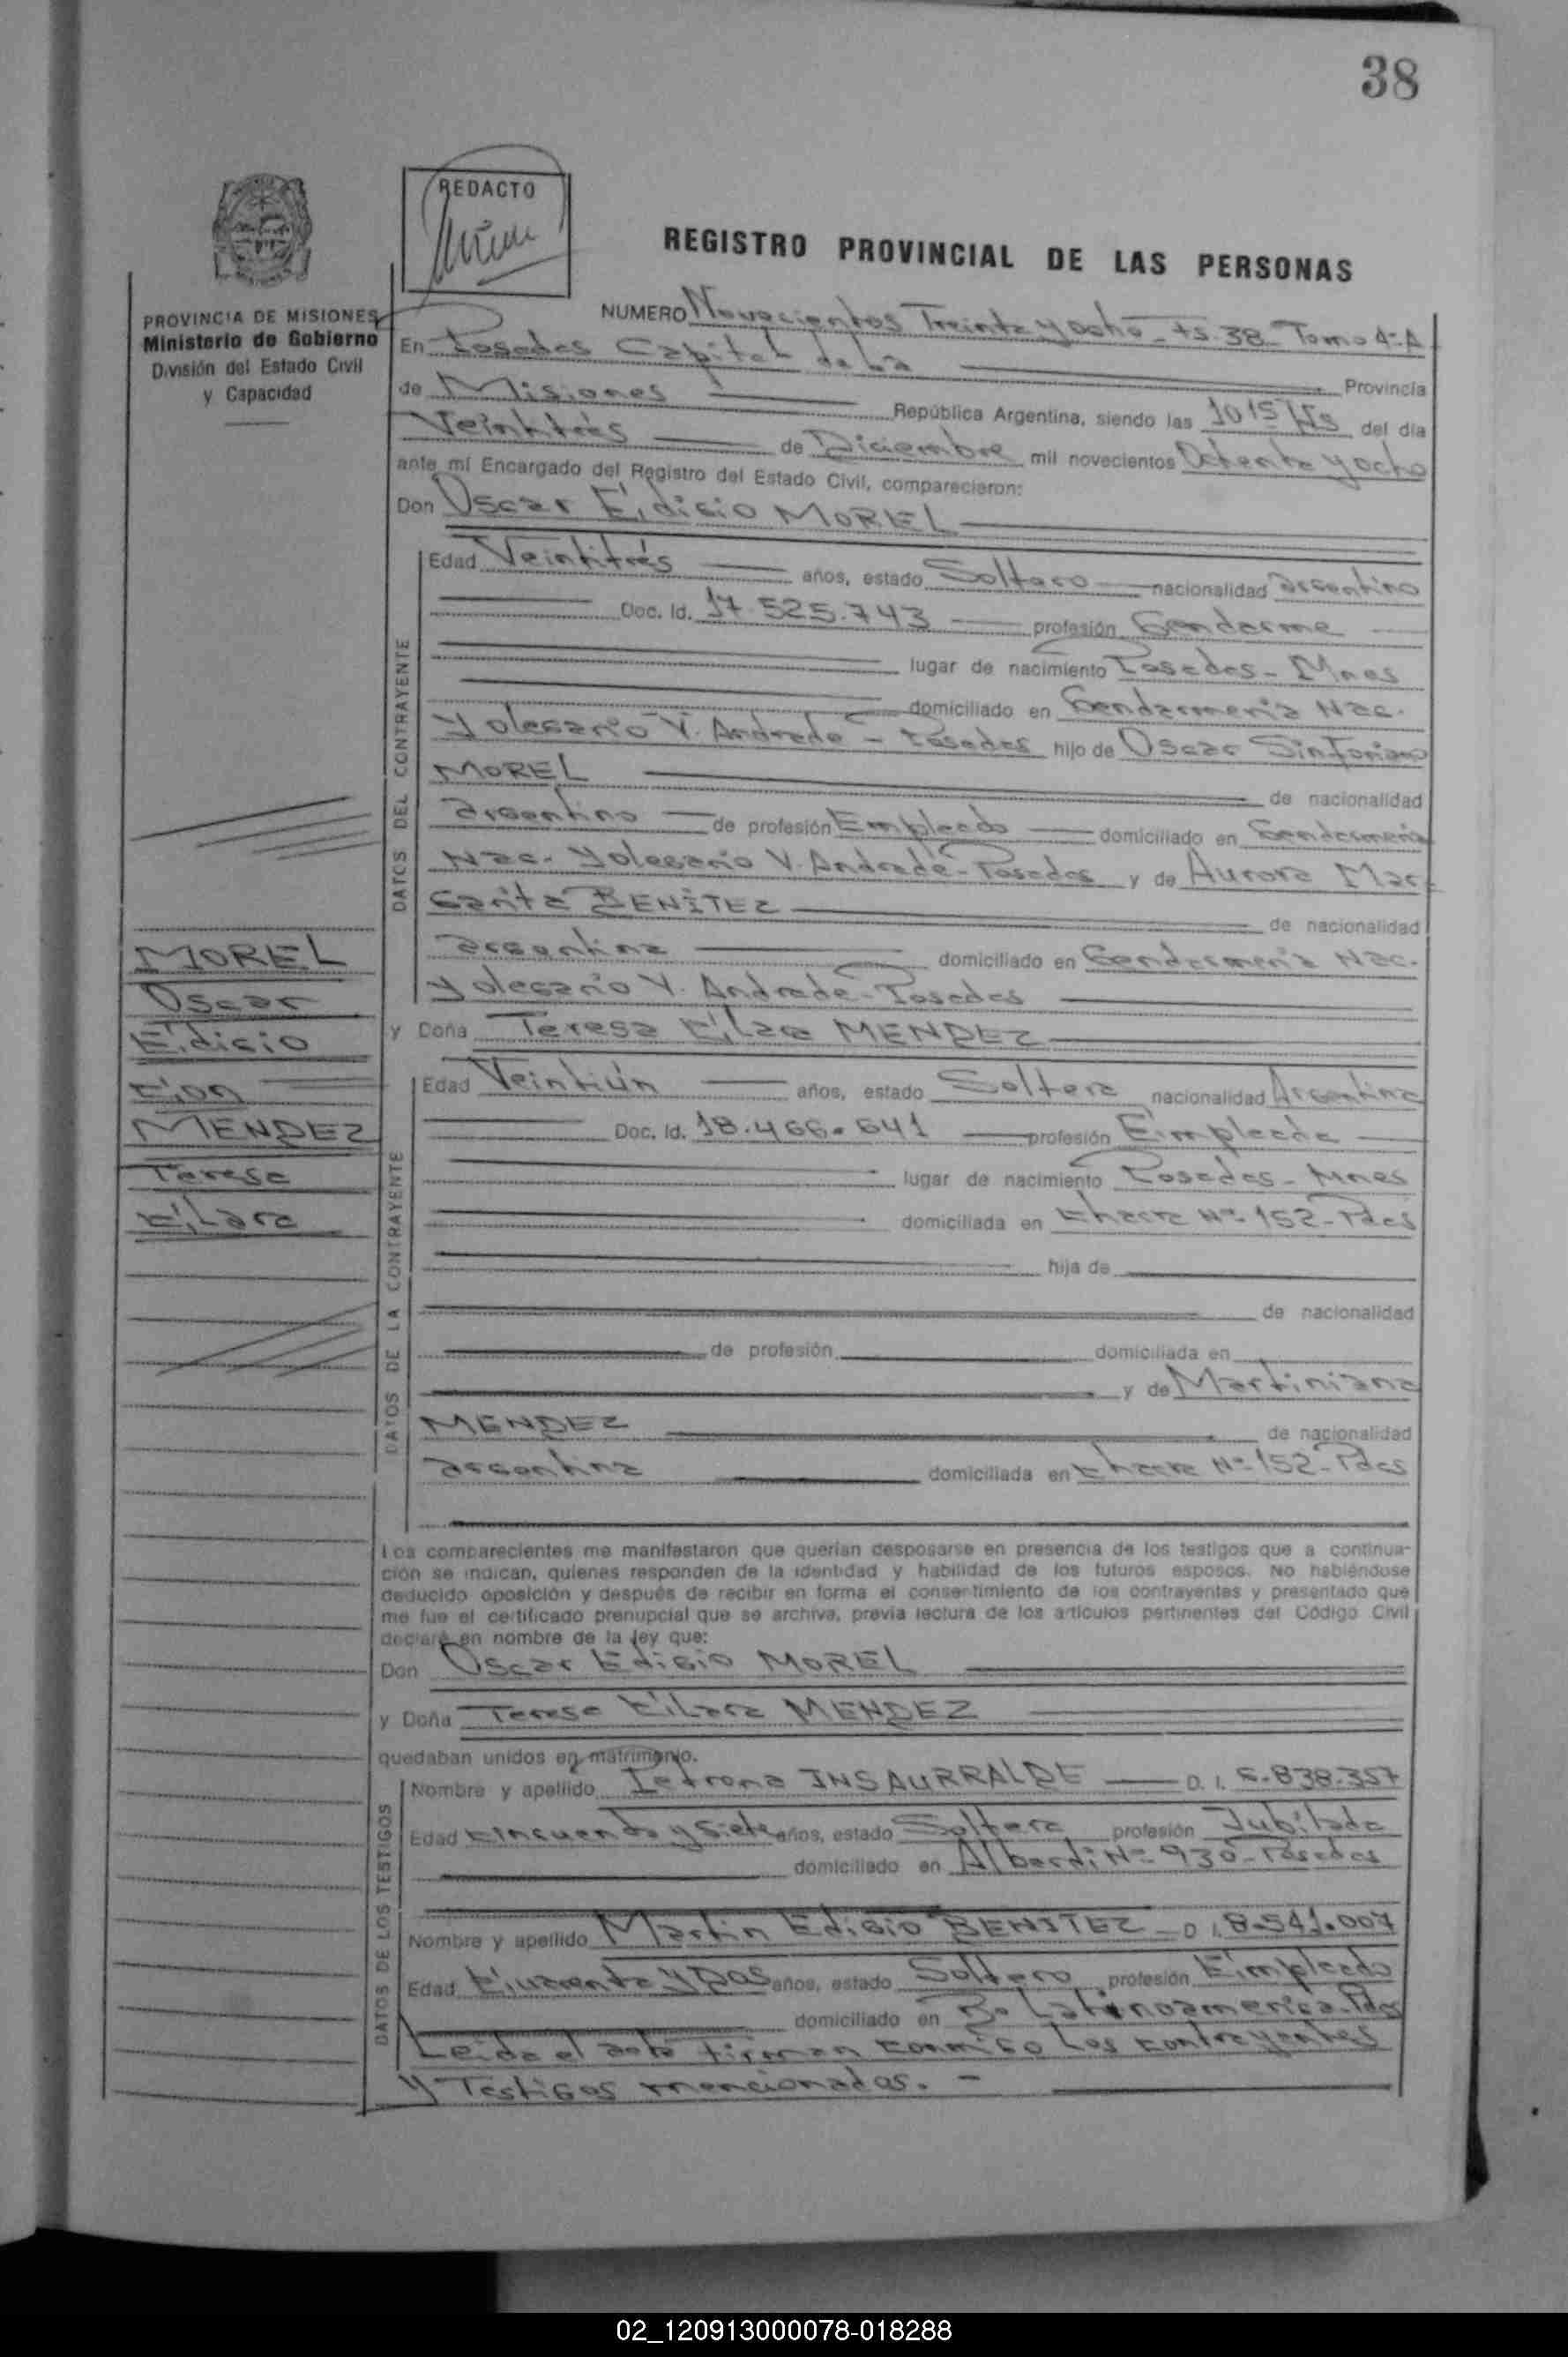 38
REDACTO
REGISTRO PROVINCIAL DE LAS PERSONAS
PROVINCIA DE MISIONES
Ministerio de Gobierno
División del Estado Civil
y Capacidad
NUMERO Novecientos Treinta y ocho - Fs. 38 - Tomo 4º-A
En Posadas Capital de La Provincia
de Misiones República Argentina, siendo las 10 15 Hs del día
Veintitrés de Diciembre mil novecientos Ochenta y ocho
ante mí Encargado del Registro del Estado Civil, comparecieron:
Don Oscar Eidicio MOREL
DATOS DEL CONTRAYENTE
Edad Veintitrés años, estado Soltero nacionalidad argentino
Doc. Id. 17.525.743 profesión Gendarme
lugar de nacimiento Posadas - Mnes
domiciliado en Gendarmeria Nac.
y Olegario V. Andrade - Posadas hijo de Oscar Sinforiano
MOREL de nacionalidad
argentino de profesión Empleado domiciliado en Gendarmeria
Nac. y Olegario V. Andrade - Posadas y de Aurora Mar-
garita BENITEZ de nacionalidad
argentina domiciliado en Gendarmeria Nac.
y Olegario V. Andrade - Posadas
MOREL
Oscar
Eidicio
Con
MENDEZ
Teresa
Clara
y Doña Teresa Clara MENDEZ
DATOS DE LA CONTRAYENTE
Edad Veintiún años, estado Soltera nacionalidad Argentina
Doc. Id. 18.466.641 profesión Empleada
lugar de nacimiento Posadas - Mnes
domiciliada en Chacra Nº 152 - Pdas
hija de
de nacionalidad
de profesión domiciliada en
y de Martiniana
MENDEZ de nacionalidad
argentina domiciliada en Chacra Nº 152 - Pdas
Los comparecientes me manifestaron que querían desposarse en presencia de los testigos que a continua-
ción se indican, quienes responden de la identidad y habilidad de los futuros esposos. No habiéndose
deducido oposición y después de recibir en forma el consentimiento de los contrayentes y presentado que
me fue el certificado prenupcial que se archiva, previa lectura de los artículos pertinentes del Código Civil
declaré en nombre de la ley que:
Don Oscar Edicio MOREL
y Doña Teresa Clara MENDEZ
quedaban unidos en matrimonio.
DATOS DE LOS TESTIGOS
Nombre y apellido Petrona INSAURRALDE D. I. 5.838.357
Edad Cincuenta y Siete años, estado Soltera profesión Jubilada
domiciliado en Alberdi Nº 930 - Posadas
Nombre y apellido Martin Edicio BENITEZ - D I. 8.541.007
Edad Cuarenta y Dos años, estado Soltero profesión Empleado
domiciliado en Bº Latinoamerica - Pdas
Leida el acta firman conmigo Los contrayentes
y Testigos mencionados. -
02_120913000078-018288